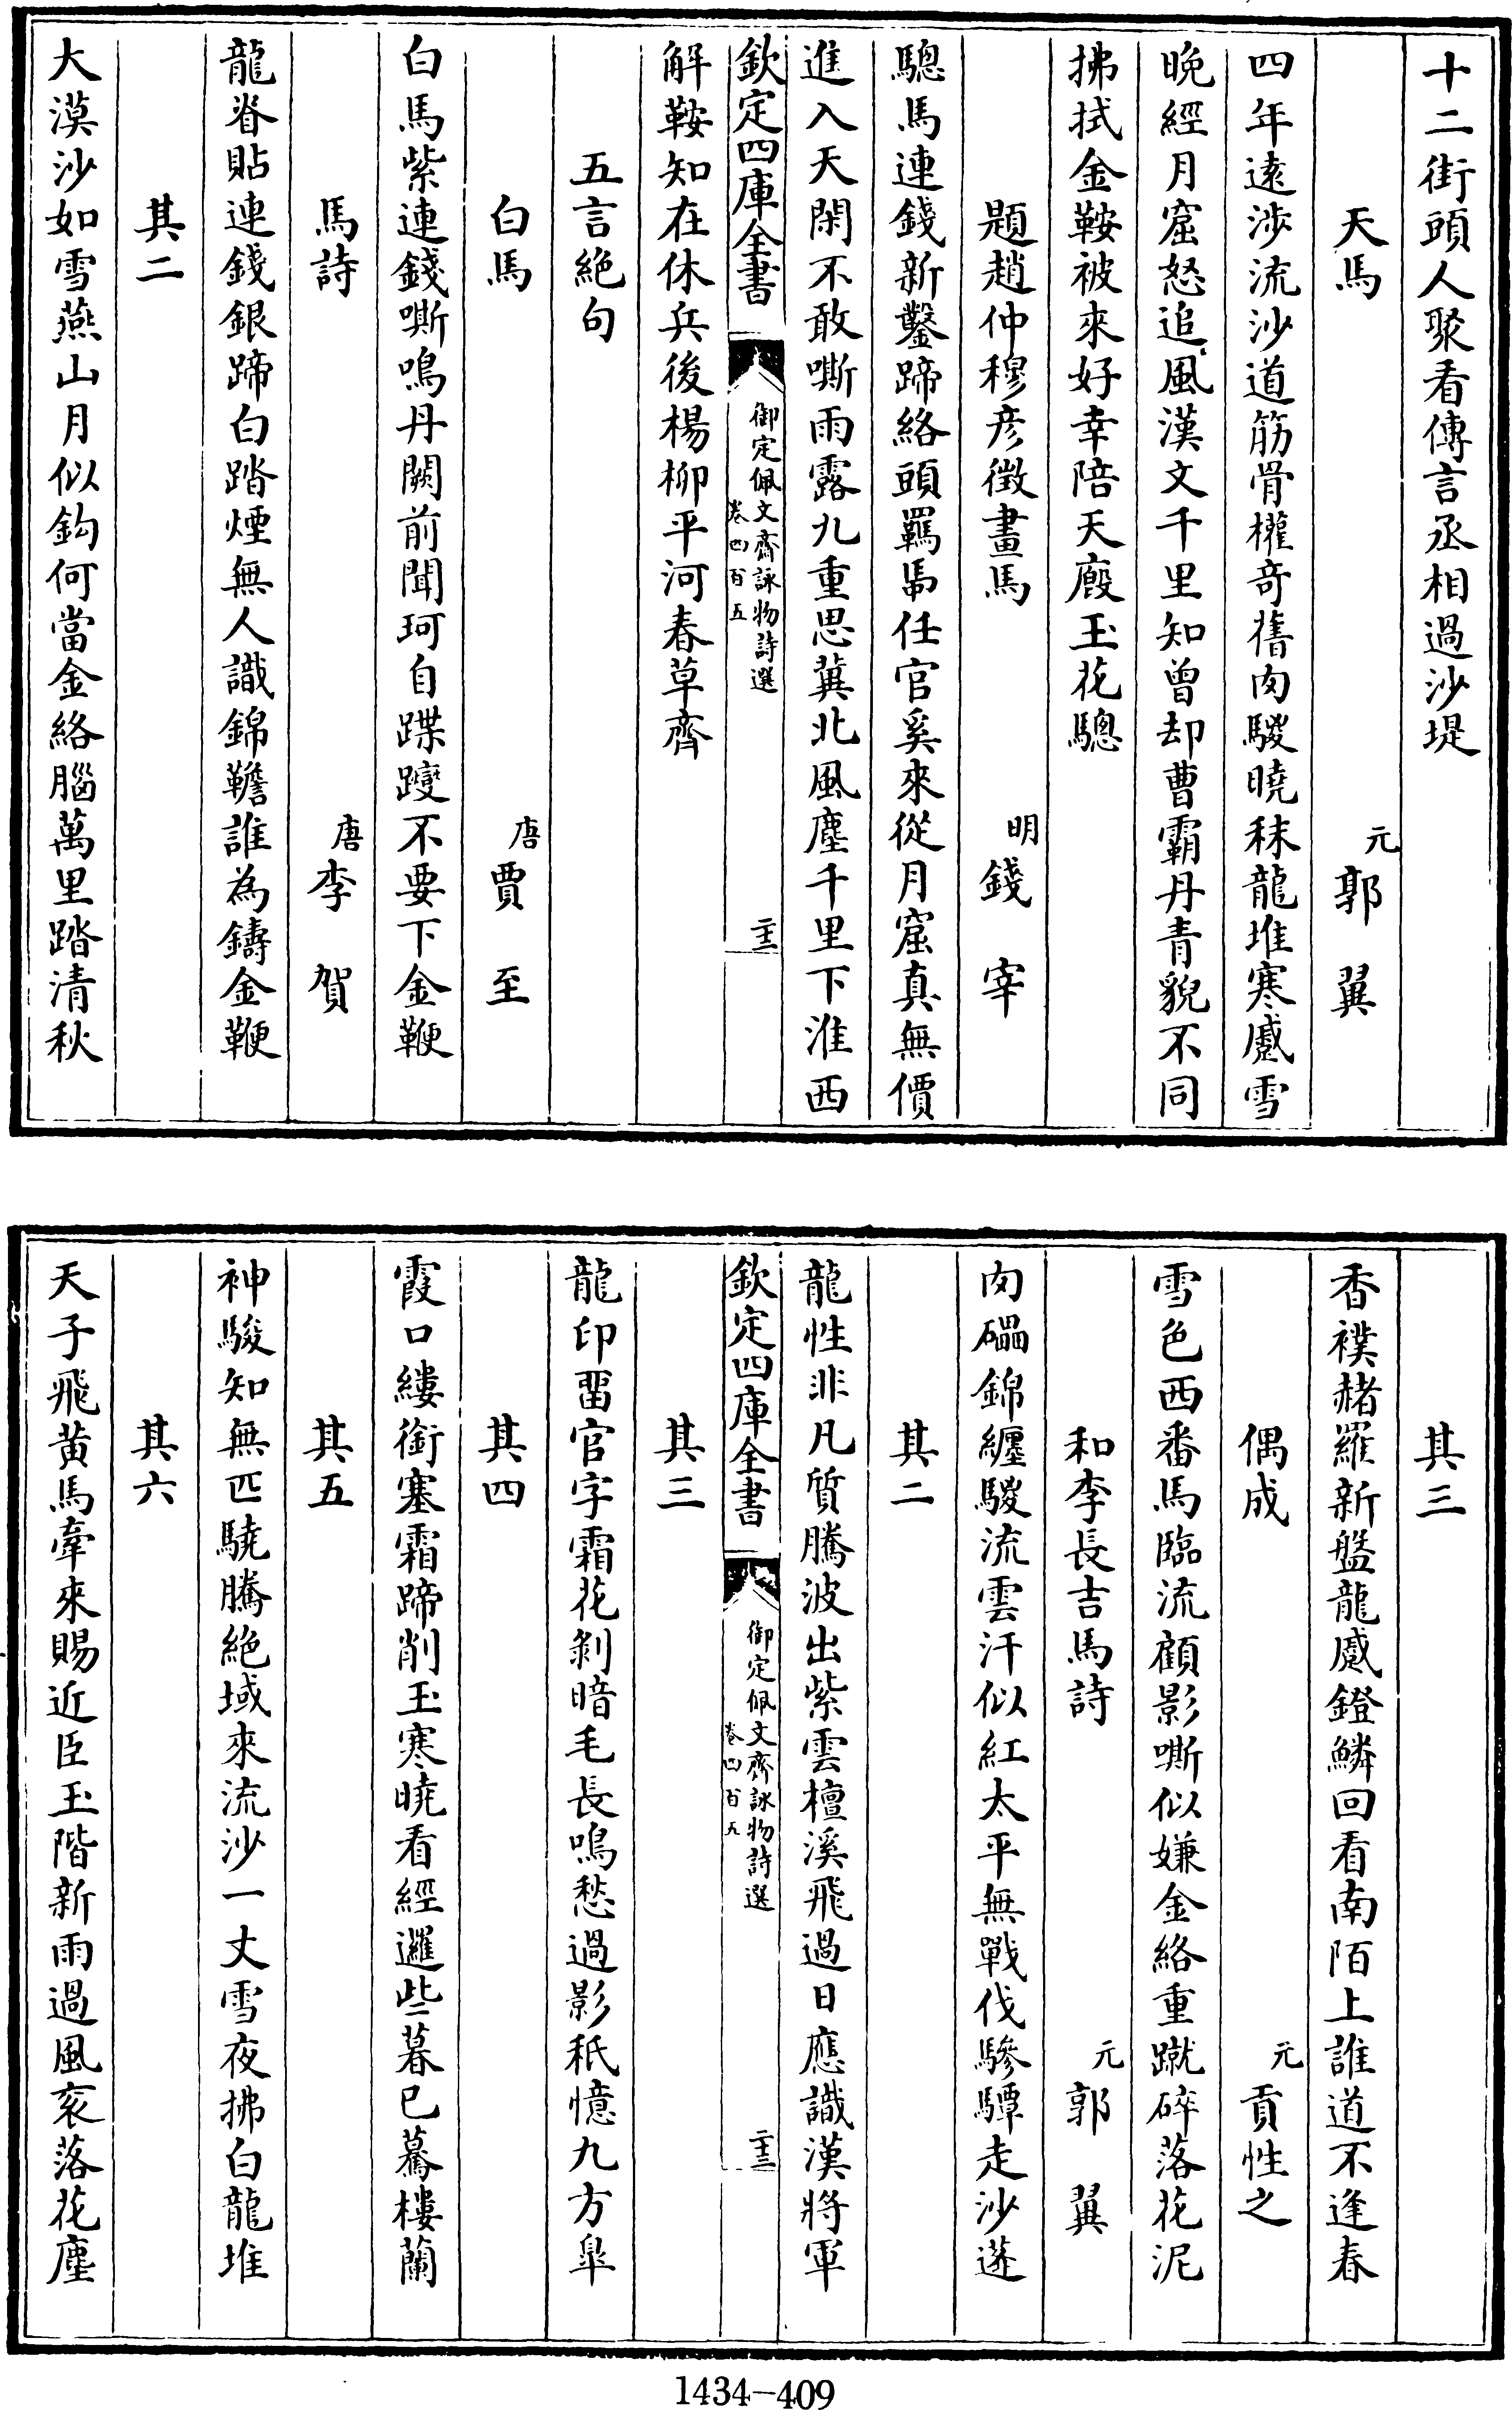 十二街頭人聚看傳言丞相過沙堤
天馬 元 郭翼
四年遠涉流沙道筋骨權奇舊肉騣曉秣龍堆寒蹙雪
晚經月窟怒追風漢文千里知曾却曹霸丹青貌不同
拂拭金鞍被來好幸陪天廏玉花驄
題趙仲穆彦徵畫馬 明 錢宰
驄馬連錢新鑿蹄絡頭羈馽任官奚來從月窟真無價
進入天閑不敢嘶雨露九重思冀北風塵千里下淮西
欽定四庫全書 御定佩文齋詠物詩選 卷四百五 二十二
解鞍知在休兵後楊柳平河春草齊
五言絶句
白馬 唐 賈至
白馬紫連錢嘶鳴丹闕前聞珂自蹀躞不要下金鞭
馬詩 唐 李賀
龍脊貼連錢銀蹄白踏煙無人識錦韂誰為鑄金鞭
其二
大漠沙如雪燕山月似鈎何當金絡腦萬里踏清秋
其三
香襆赭羅新盤龍蹙鐙鱗回看南陌上誰道不逢春
偶成 元 貢性之
雪色西番馬臨流顧影嘶似嫌金絡重蹴碎落花泥
和李長吉馬詩 元 郭翼
肉礧錦纏騣流雲汗似紅太平無戰伐驂驔走沙蓬
其二
龍性非凡質騰波出紫雲檀溪飛過日應識漢將軍
欽定四庫全書 御定佩文齋詠物詩選 卷四百五 二十三
其三
龍印畱官字霜花剝暗毛長鳴愁過影秖憶九方臯
其四
霞口縷銜塞霜蹄削玉寒曉看經邏些暮已驀樓蘭
其五
神駿知無匹驍騰絶域來流沙一丈雪夜拂白龍堆
其六
天子飛黃馬牽來賜近臣玉階新雨過風衮落花塵
1434-409